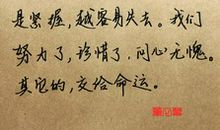 是紧握，越容易失去。我们
努力了，珍惜了，问心无愧。
其它的，交给命运。